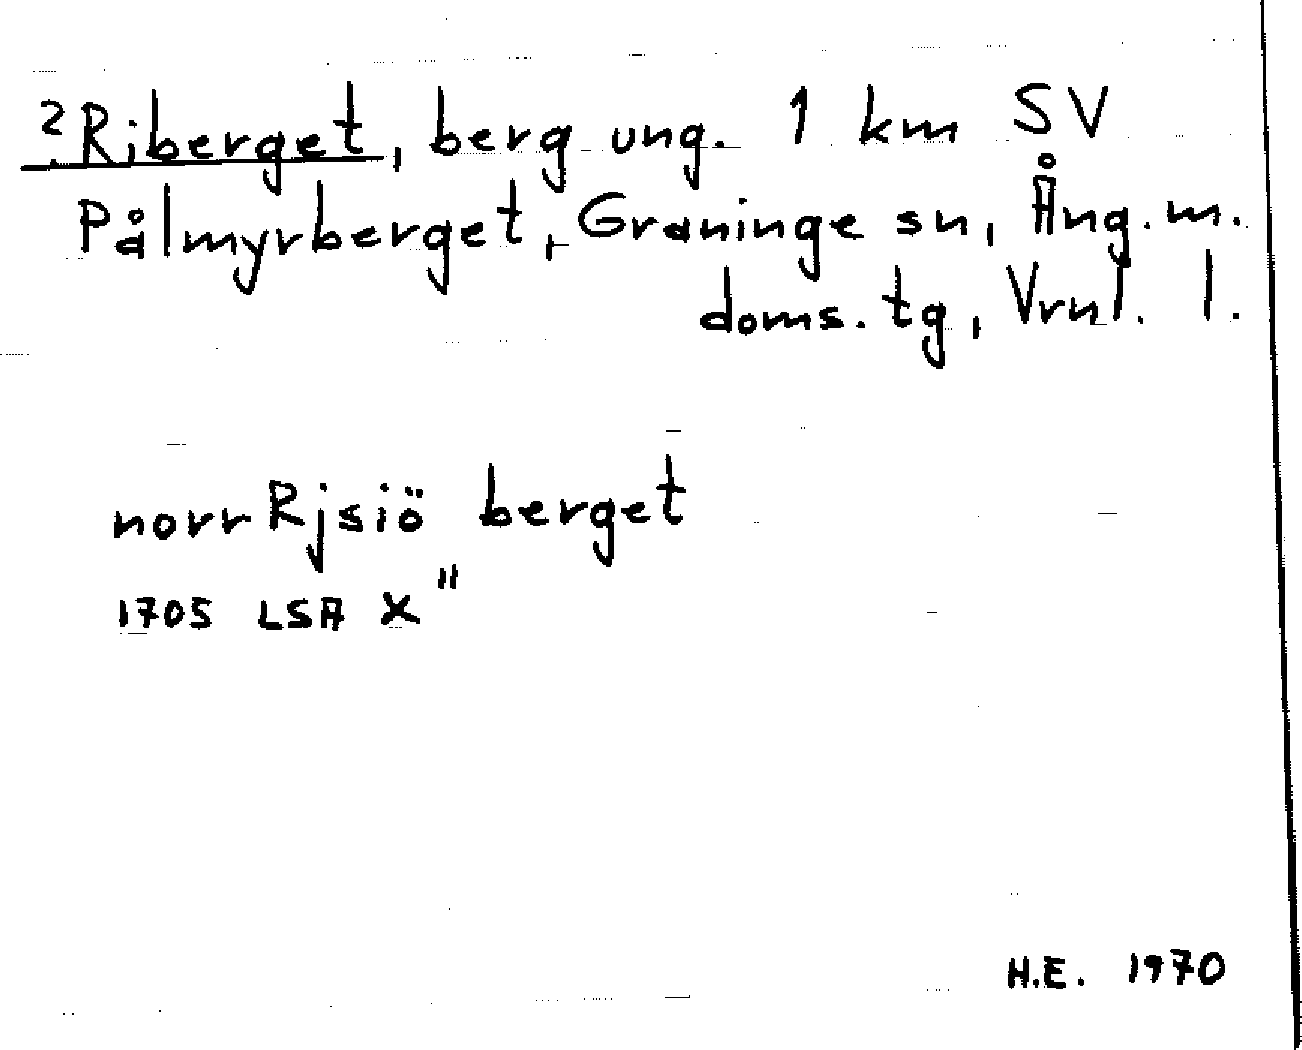 ?Riberget, berg ung. 1 km SV
Pålmyrberget, Graninge sn, Ång.m.
doms. tg, Vrnl. l.
norr Rjsiö berget
1705 LSA X"
H.E. 1970